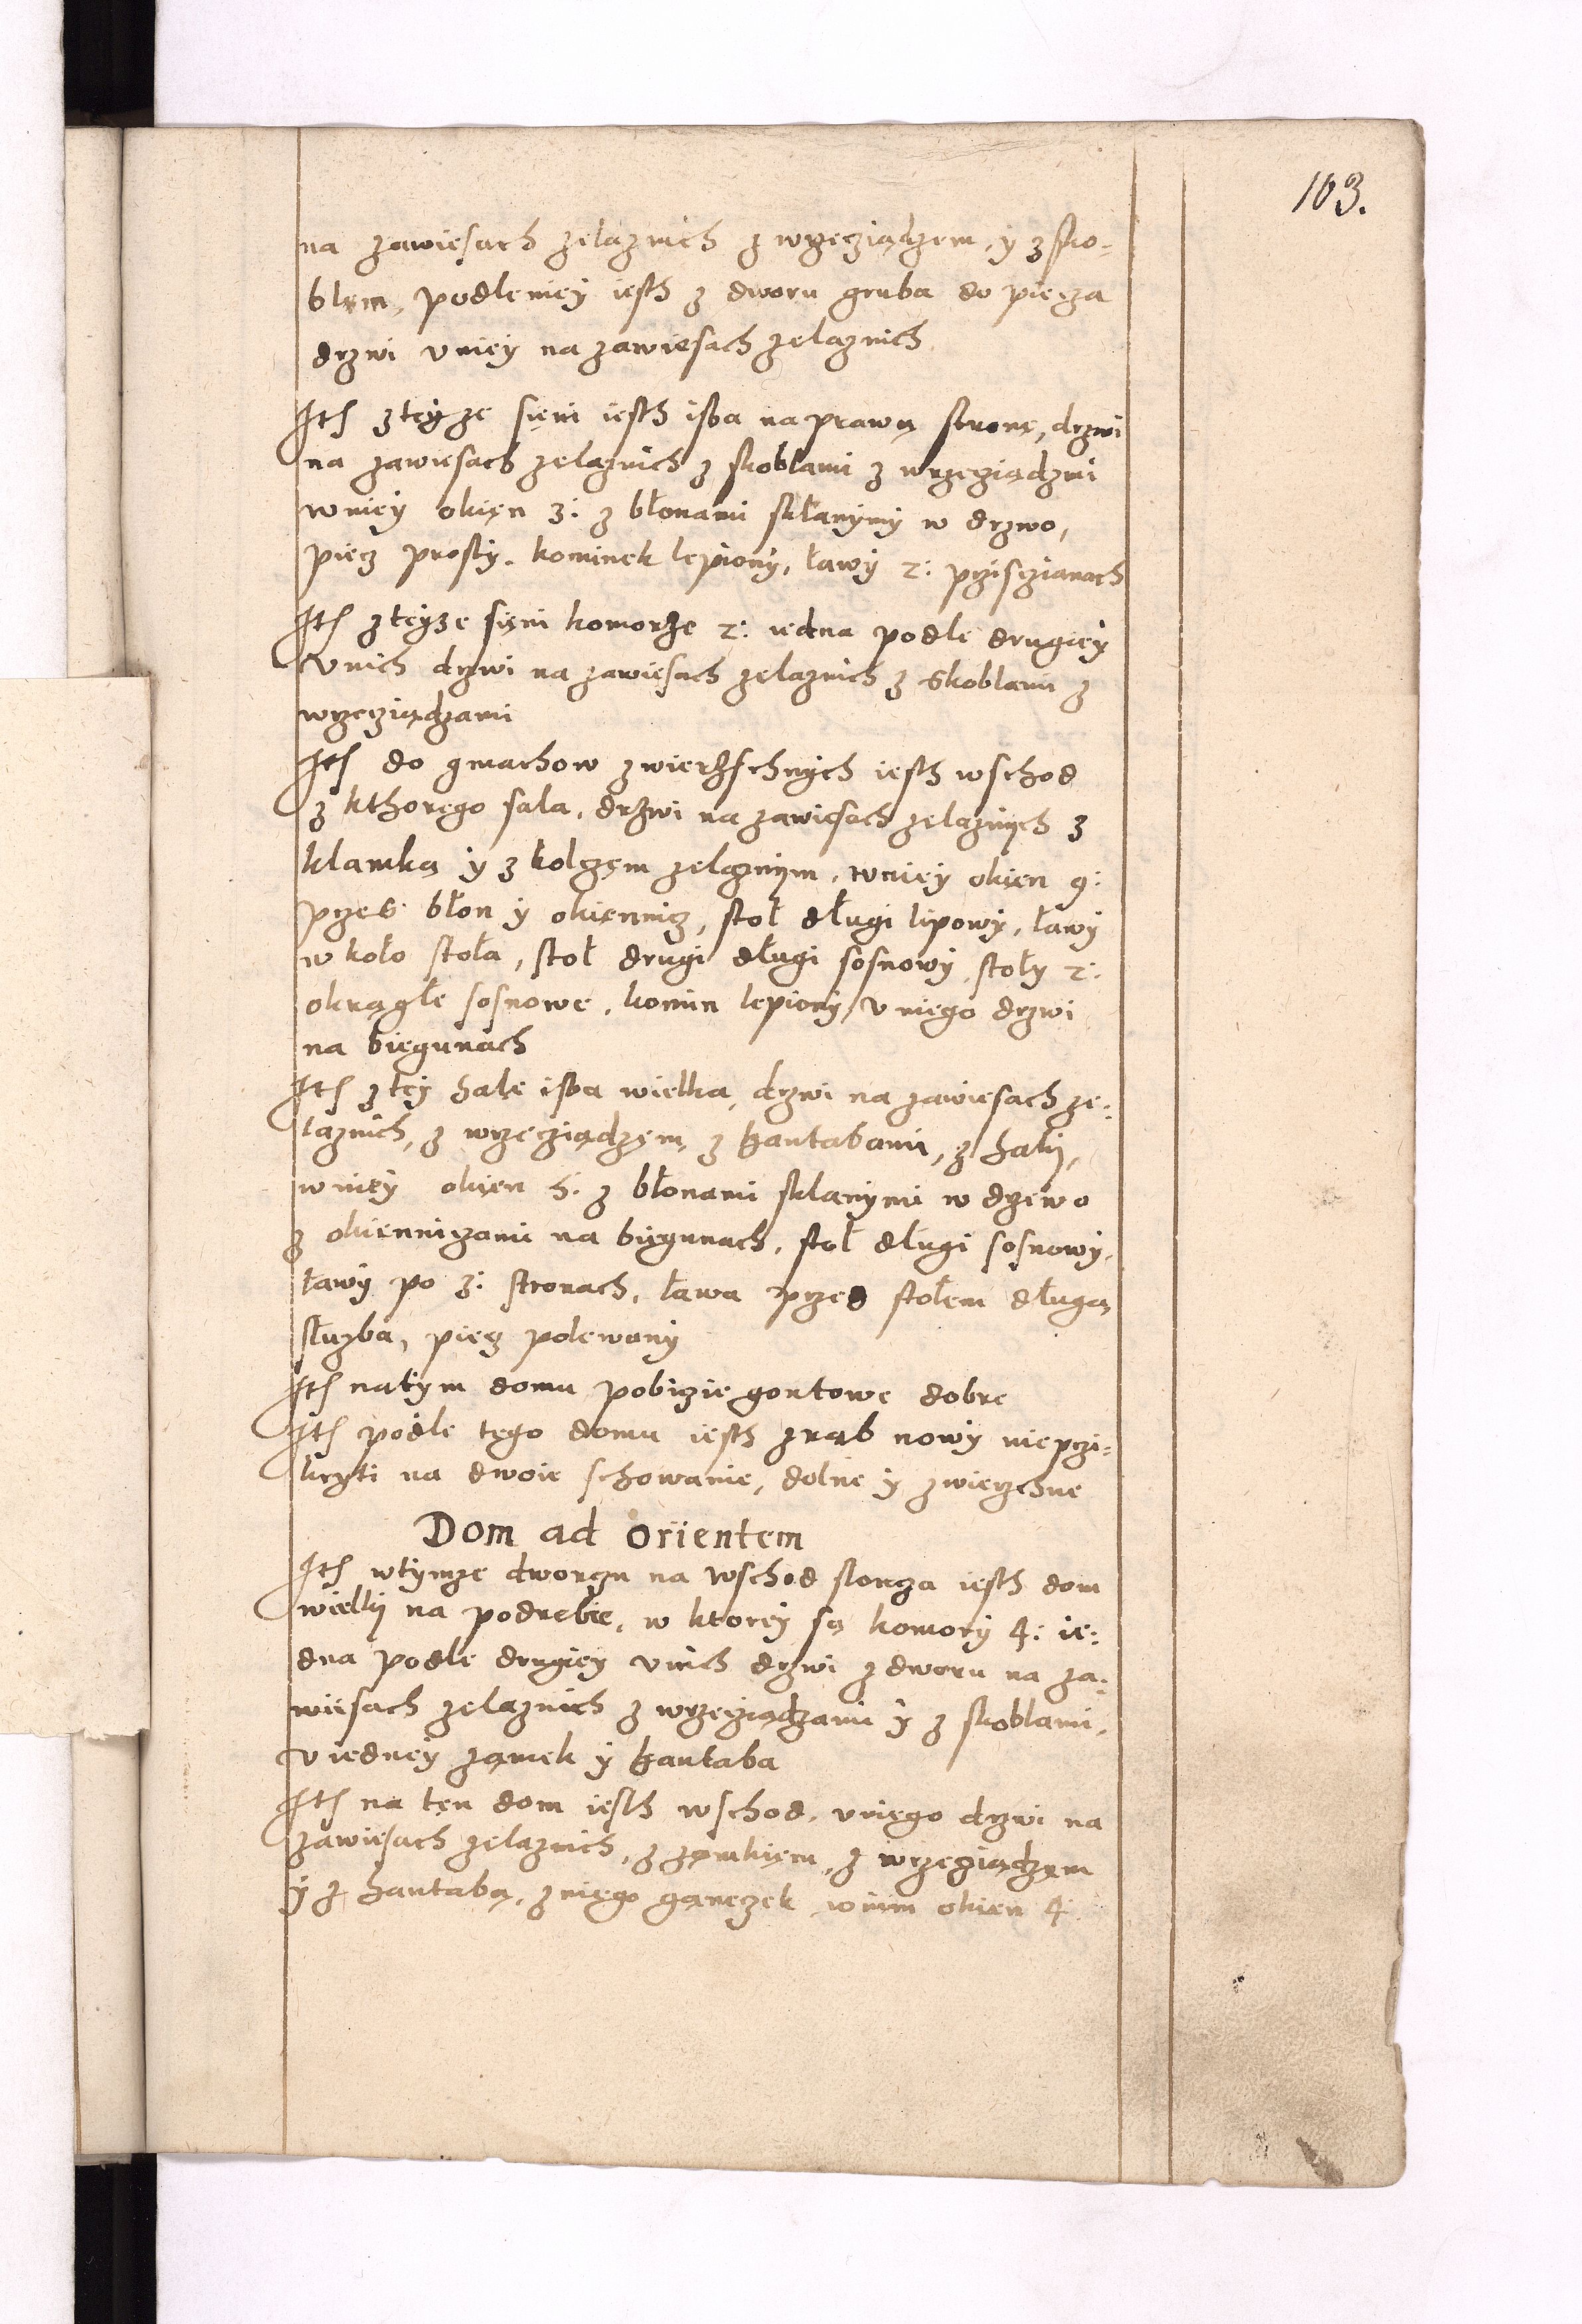 103.
na zawiesach zelaznich z wrzecziądzem, y z sko-
blem, podleniey iesth z dworu gruba do piecza
drzwi v niey na zawiesach zelaznich
Ith z teyze sieni iesth isba na prawą stronę, drzwi
na zawiesach zelaznich z skoblami z wrzecziądzmi
w niey okien 3: z błonami sklanymy w drzwo,
piecz prosty. kominek lepiony, ławy 2: przi sczianach
Ith z teyze sieni komorze 2: iedna podle drugiey
v nich drzwi na zawiesach zelaznich z skoblami z
wrzecziądzami
Ith do gmachow zwierzschnych iesth wschod
z kthorego sala, drzwi na zawiesach zelaznych z
klamką y z kolczem zelaznym, w niey okien 9:
przes błon y okiennicz, stoł długi lipowy, ławy
w koło stoła, stoł drugi długi sosnowy, stoły 2:
okrągłe sosnowe, komin lepiony, v niego drzwi
na biegunach
Ith z tey hale isba wielka, drzwi na zawiesach ze-
laznich, z wrzecziądzem, z hantabami, z haki,
w niey okien 5. z błonami sklanymi w drzewo
z okienniczami na biegunach, stoł długi sosnowy,
ławy po 3: stronach, ława przed stołem długa,
służba, piecz polewany
Ith na tym domu pobiczie gontowe dobre
Ith podle tego domu iesth zrąb nowy nieprzi-
kryti na dwoie schowanie, dolne y zwierzchne
Dom ad orientem
Ith w tymze dworczu na wschod słoncza iesth dom
wielki na podrebie, w ktorey są komory 4: ie-
dna podle drugiey v nich drzwi z dworu na za-
wiesach zelaznich z wrzecziądzami y z skoblami,
v iedney zamek y hantaba
Ith na ten dom iesth wschod, v niego drzwi na
zawiesach zelaznich, z zamkiem, z wrzecziądzem
y z hantabą, z niego ganeczek, w nim okien 4